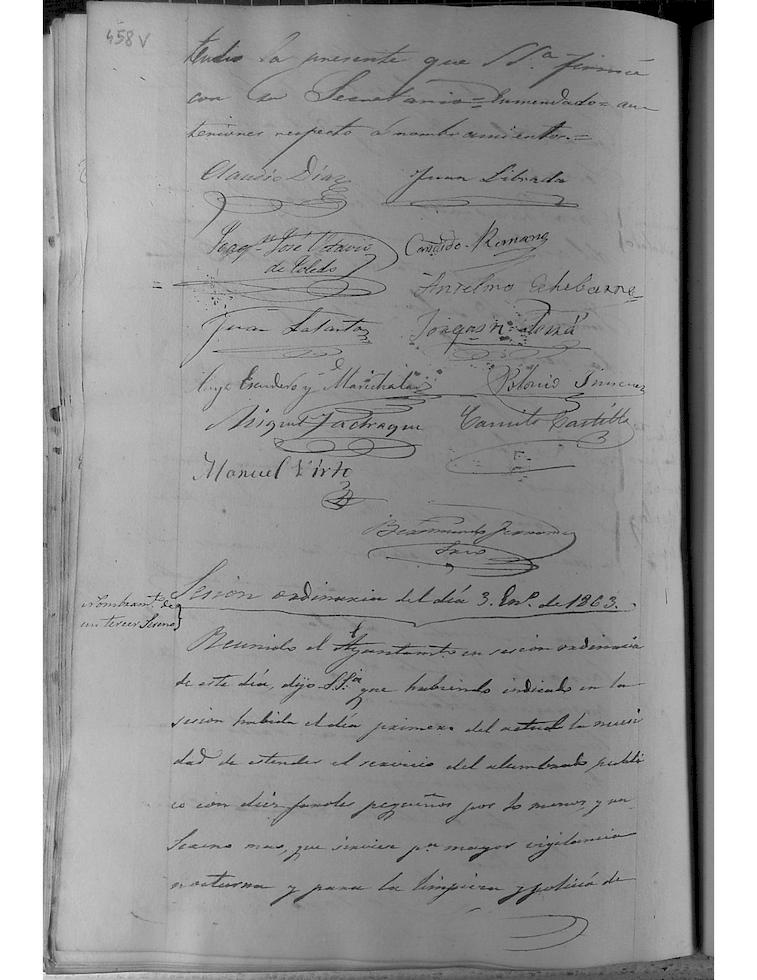 458 v
tendió la presente que SSª firmó
con su Secretario = Enmendado = au
teriores respecto á nombramientos =
Claudio Díaz
Juan Librada
Joaqn José Octavio
de Toledo
Candido Romano
Anselmo Echebarre
Juan
Joaquin
Escudero y Marichalar
Polonio Jimenez
Miguel Jadraque
Camilo Castilla
Manuel Virto
Bermundo
Srio
Sesion ordinaria del día 3. Enº. de 1863.
Nombramto. de
un tercer Sereno
Reunido el Ayuntamto. en sesion ordinaria
de este día, dijo SSª. que habiendo indicado en la
sesion habida el día primero del actual la necesi
dad de estender el servicio del alumbrado publi
co con diez faroles pequeños por lo menos, y un
Sereno mas, que sirviera pª mayor vigilancia
nocturna y para la limpieza y policía de